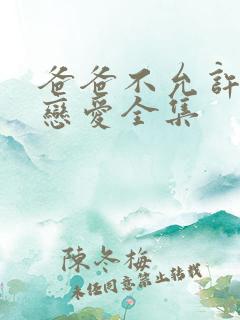 爸爸不允許
戀愛全集
陳冬梅
未經同意禁止轉載